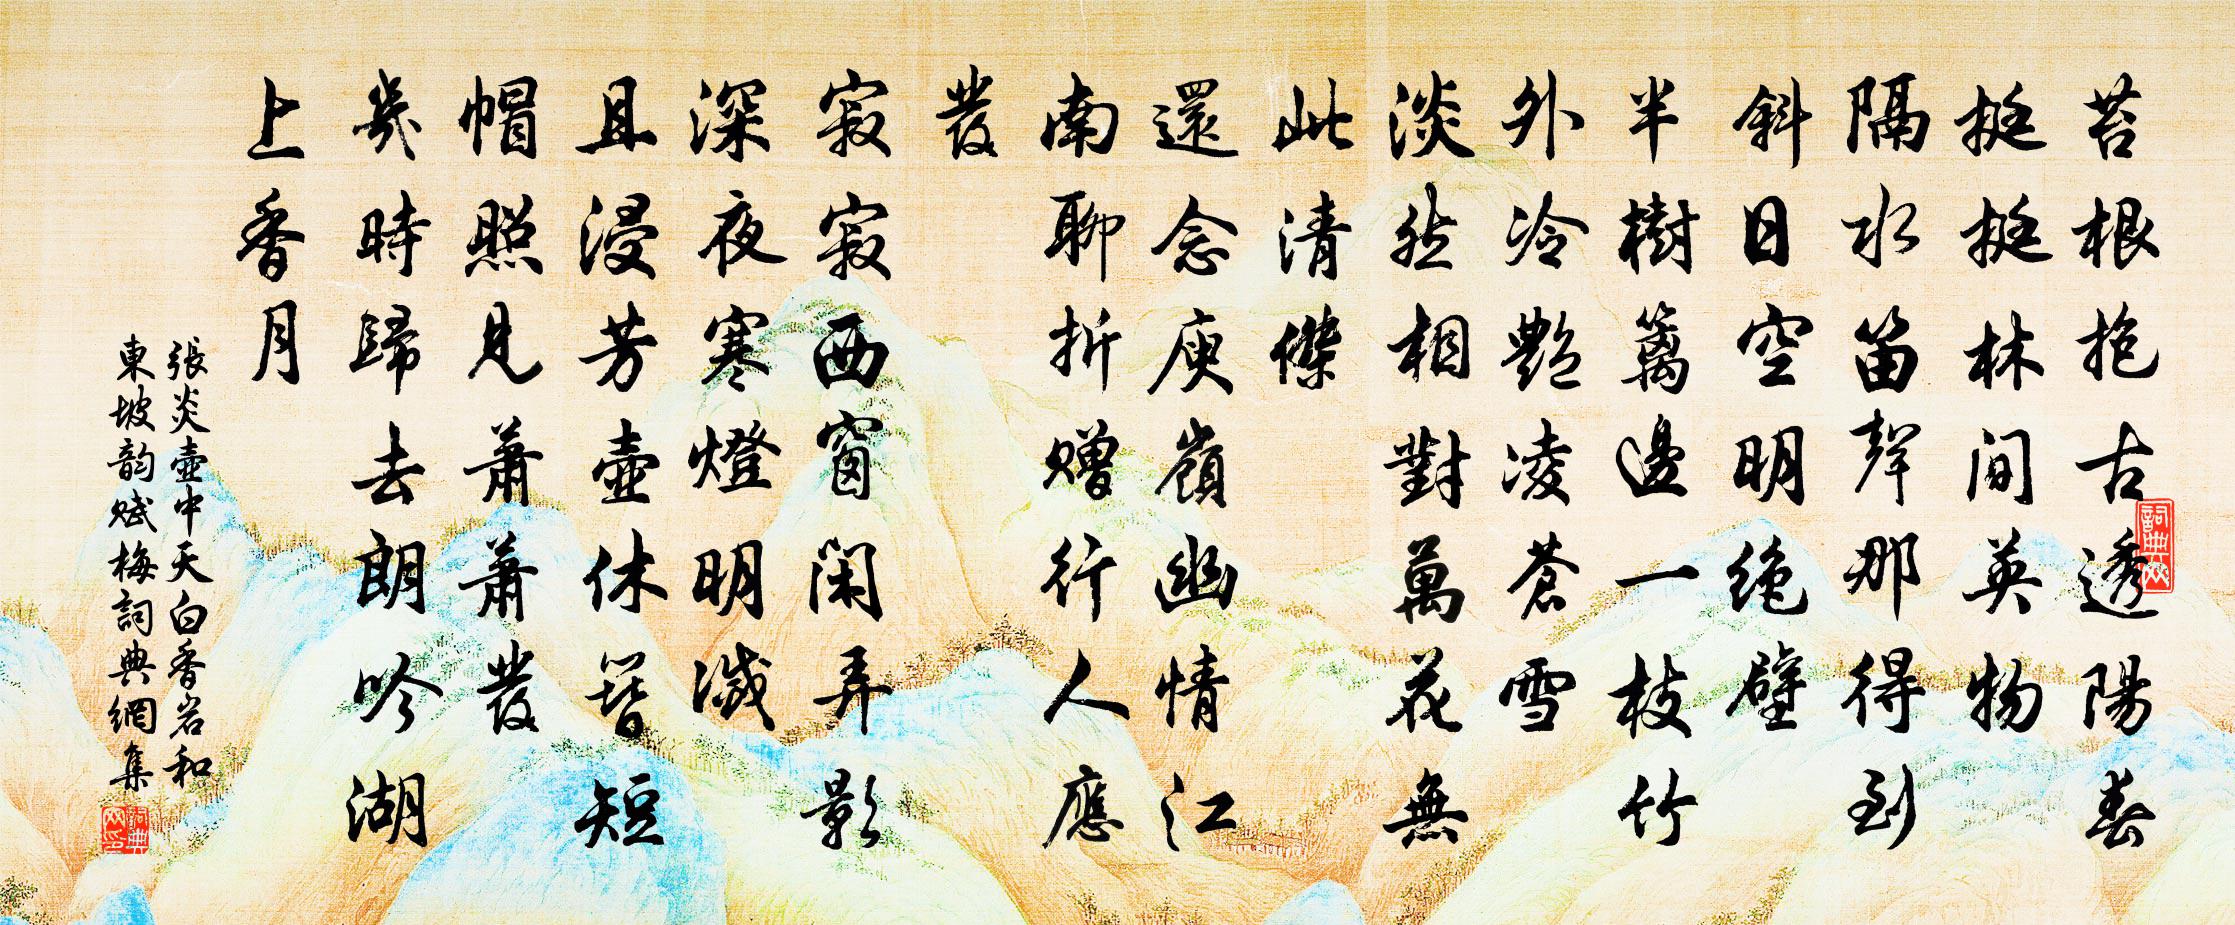 苔根抱古透陽春
挺挺林間英物
隔水笛聲那得到
斜日空明絶壁
半樹籬邊一枝竹
外冷艷凌蒼雪
淡然相對萬花無
此清傑
還念庾嶺幽情江
南聊折贈行人應
發
寂寂西窗閑弄影
深夜寒燈明滅
且浸芳壺休簪短
帽照見蕭蕭發
幾時歸去朗吟湖
上香月
張炎壺中天白香岩和
東坡韵賦梅詞典網集
詞典网
詞典网印